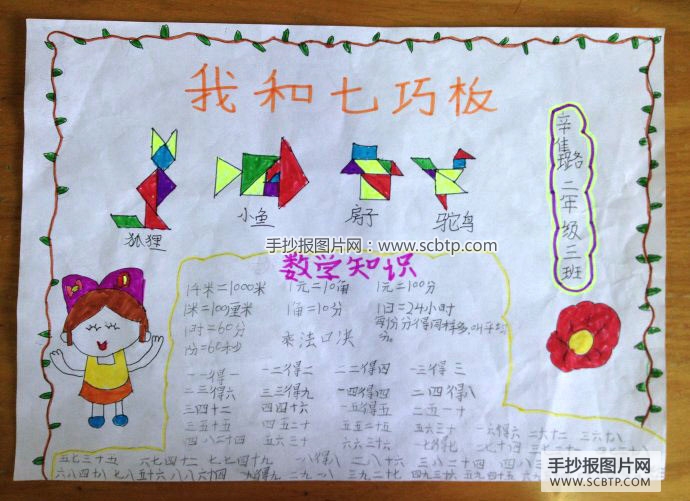 我和七巧板
辛集路二年级三班
狐狸
小鱼
房子
鸵鸟
手抄报图片网:www.scbtp.com
数学知识
1千米=1000米 1元=10角 1元=100分
1米=100厘米 1角=10分 1日=24小时
1时=60分 每份分得同样多,叫平均分。
1分=60秒 乘法口决
一一得一 一二得二 二二得四 一三得三
二三得六 三三得九 一四得四 二四得八
三四十二 四四十六 一五得五 二五一十
三五十五 四五二十 一六得六 二六十二 三六十八
四六二十四 五六三十 六六三十六 一七得七 二七十四 三七二十一
五七三十五 六七四十二 七七四十九 一八得八 二八十六
六八四十八 七八五十六 八八六十四 一九得九 二九一十八
手抄报图片网
SCBTP.COM